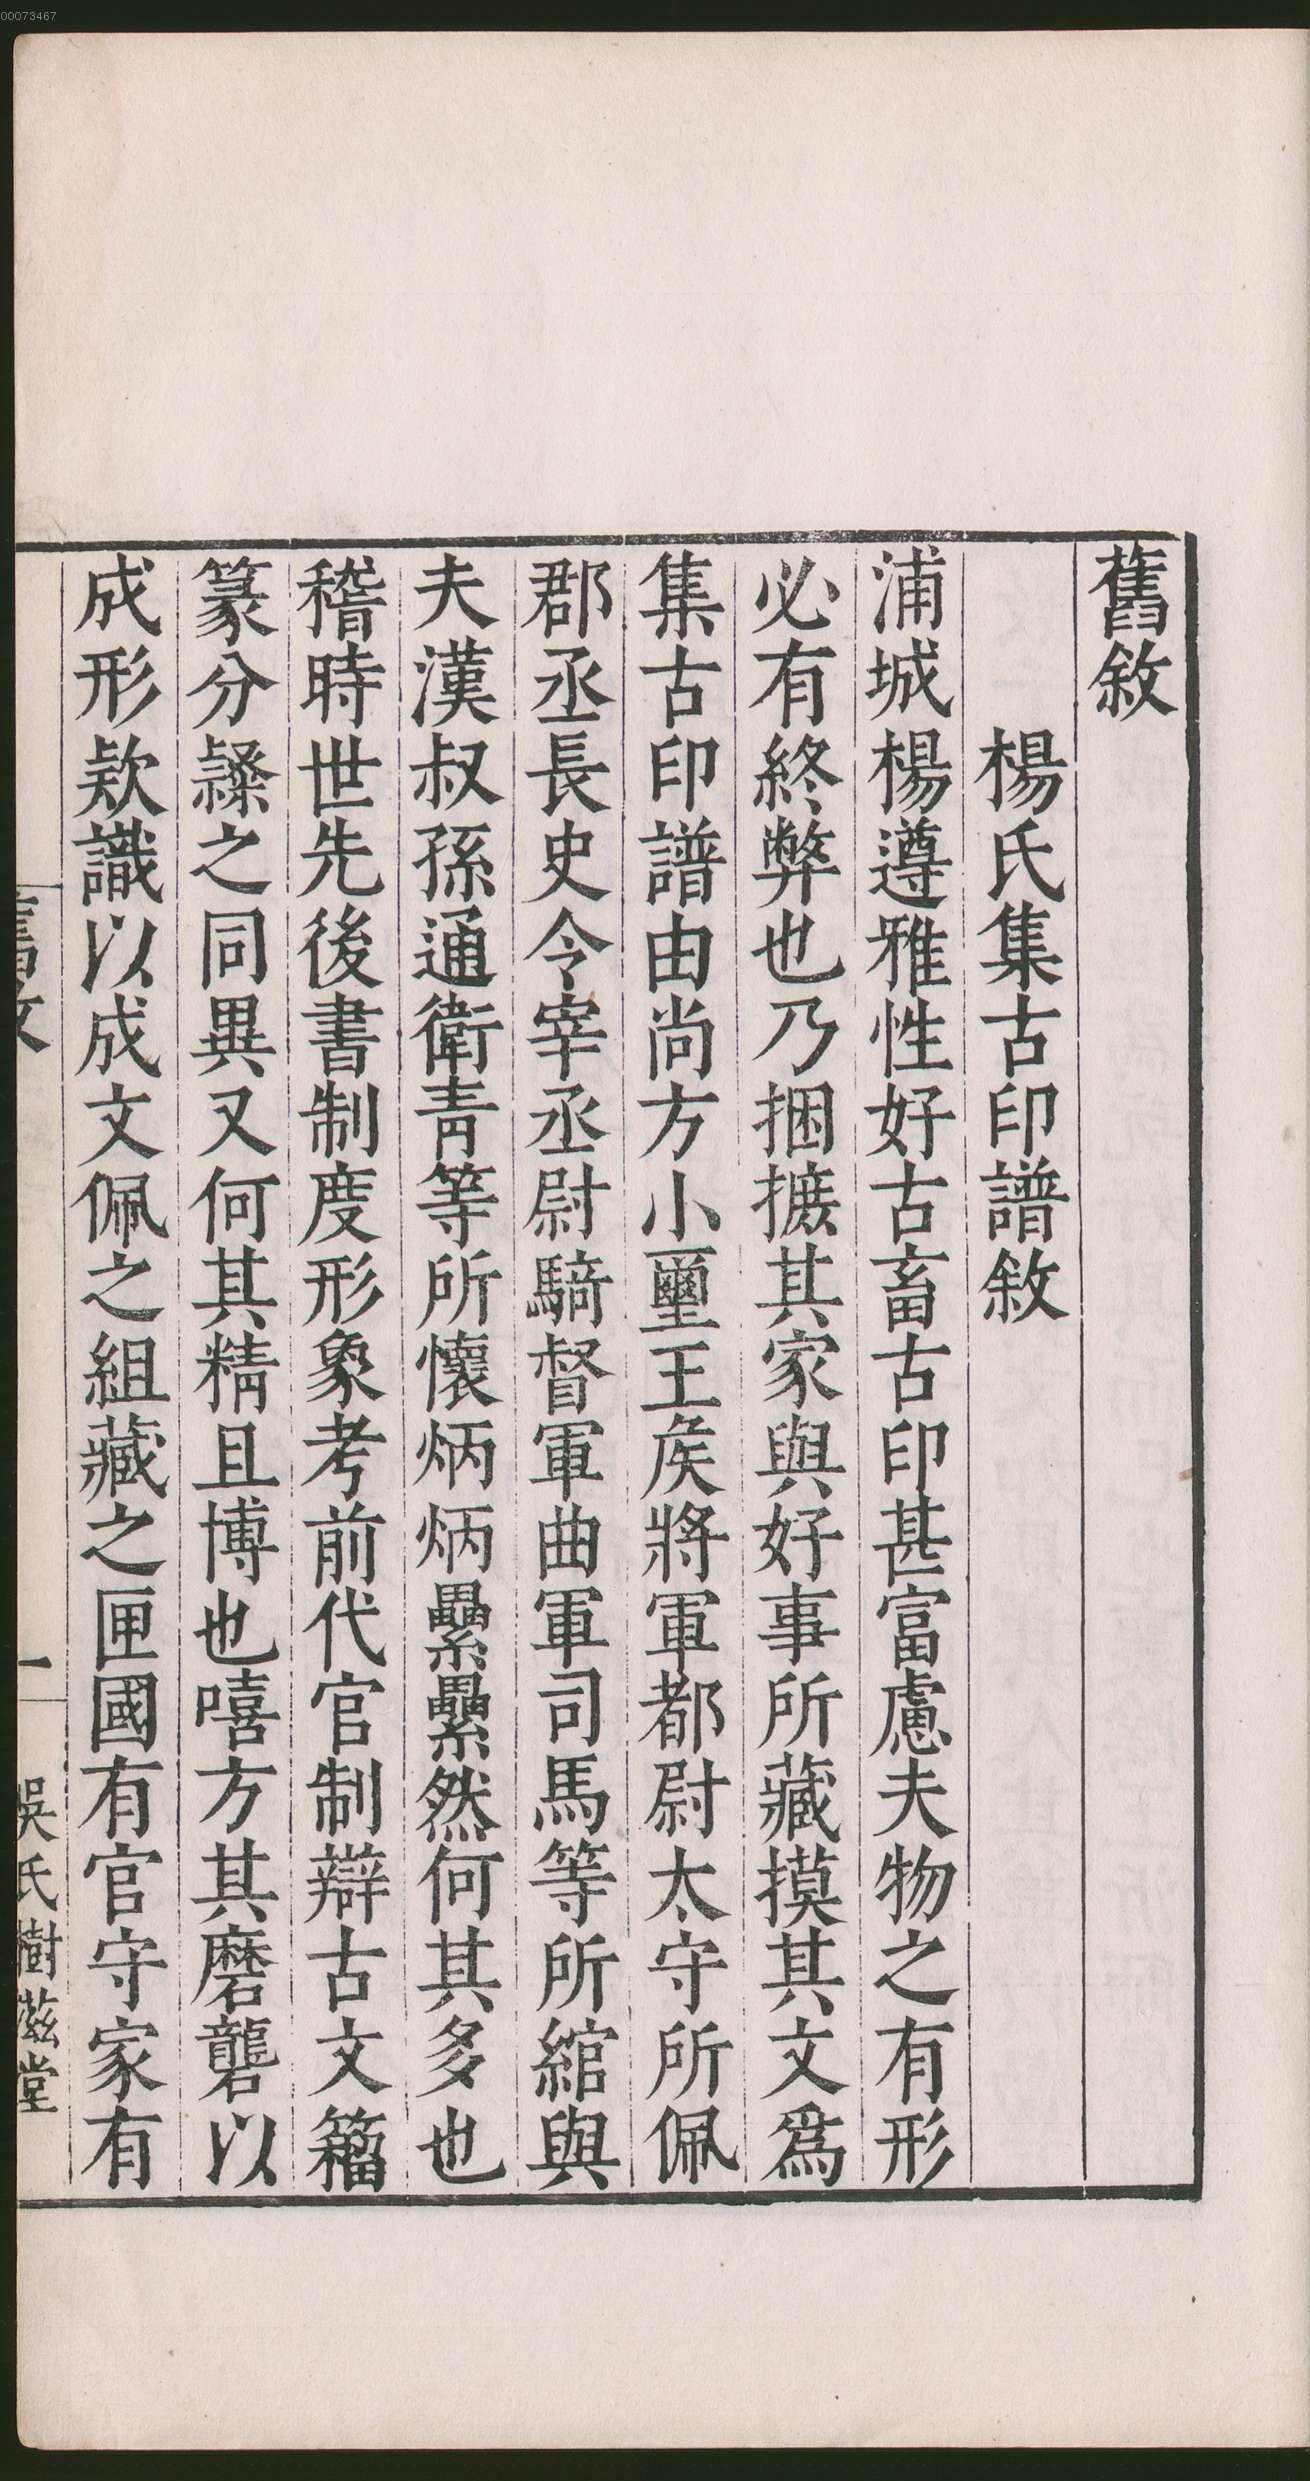 00073467
舊敘
楊氏集古印譜敘
浦城楊遵雅性好古畜古印甚富慮夫物之有形
必有終弊也乃捆摭其家與好事所藏摸其文爲
集古印譜由尚方小璽王矦將軍都尉太守所佩
郡丞長史令宰丞尉騎督軍曲軍司馬等所綰與
夫漢叔孫通衛青等所懷炳炳纍纍然何其多也
稽時世先後書制度形象考前代官制辯古文籀
篆分隸之同異又何其精且博也嘻方其磨礱以
成形欵識以成文佩之組藏之匣國有官守家有
舊敘
一
吳氏樹滋堂